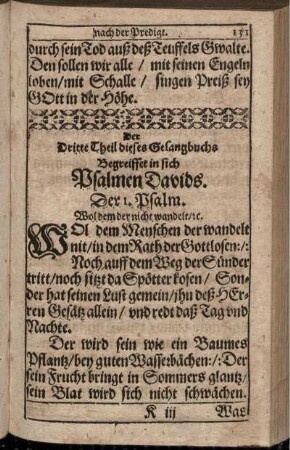 nach der Predigt. 151
durch sein Tod auß deß Teuffels Gwalte.
Den sollen wir alle / mit seinen Engeln
loben / mit Schalle / singen Preiß sey
GOtt in der Höhe.
Der
Dritte Theil dieses Gesangbuchs
Begreiffet in sich
Psalmen Davids.
Der 1. Psalm.
Wol dem der nicht wandelt / ɾc.
WOl dem Menschen der wandelt
nit / in dem Rath der Gottlosen :/:
Noch auff dem Weg der Sünder
tritt / noch sitzt da Spötter kosen / Son-
der hat seinen Lust gemein / jhn deß HEr-
ren Gesätz allein / vnd redt daß Tag vnd
Nachte.
Der wird sein wie ein Baumes
Pflantz / bey guten Wasserbächen :/: Der
sein Frucht bringt in Sommers glantz /
sein Blat wird sich nicht schwächen.
K iij Was